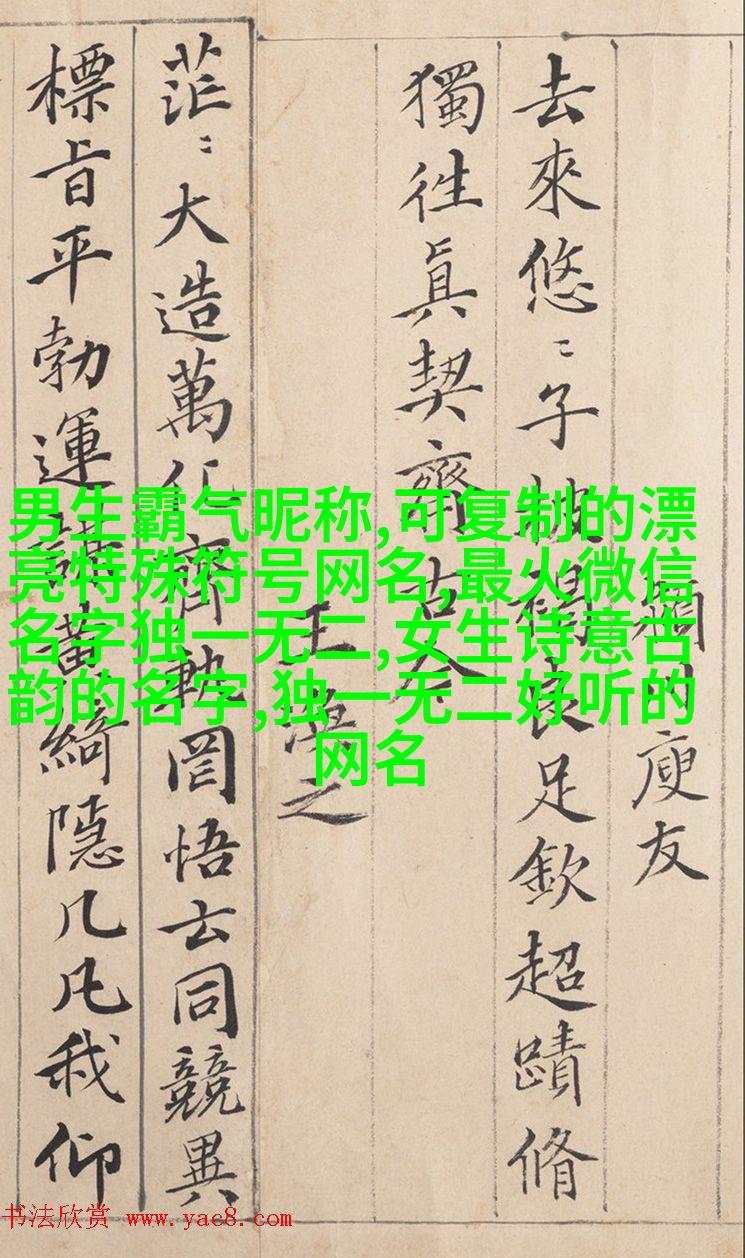 庾友
去來悠〻子披褐良足欽超蹟脩
獨往眞契齊古今
王渙之
茫〻大造萬化齊軌罔悟玄同競異
標旨平勃運謀黃綺隱几凡我仰
男生霸气昵称,可复制的漂
亮特殊符号网名,最火微信
名字独一无二,女生诗意古
韵的名字,独一无二好听的
网名
书法欣赏 www.yac8.com